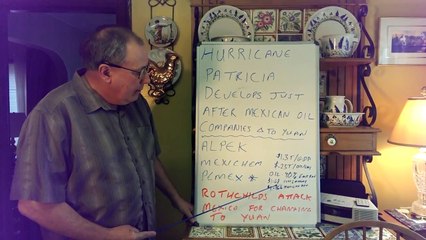 HURRICANE
PATRICIA
DEVELOPS JUST
AFTER MEXICAN OIL
COMPANIES Δ TO YUAN
ALPEK
MEXICHEM
PEMEX * OIL
ROTHCHILDS ATTACK
MEXICO FOR CHANGING
TO YUAN